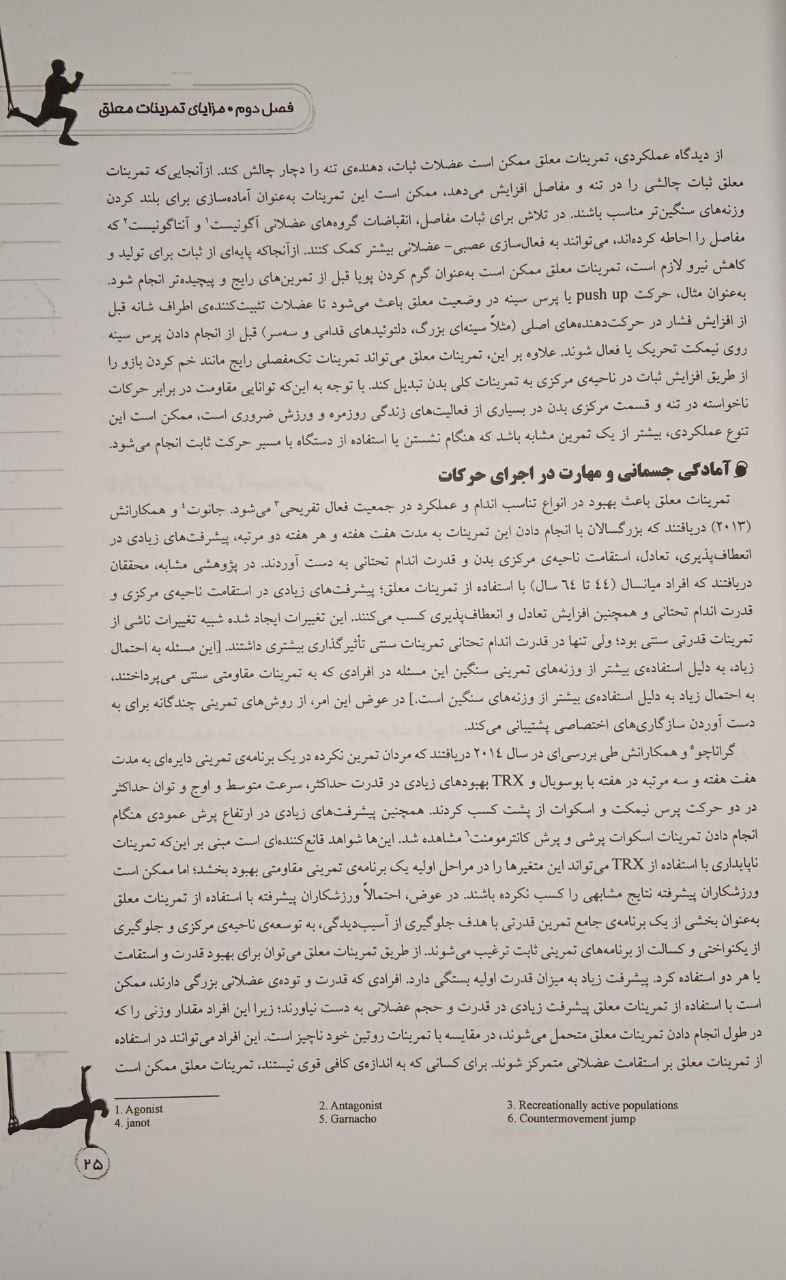 فصل دوم • مزایای تمرینات معلق
از دیدگاه عملکردی، تمرینات معلق ممکن است عضلات ثبات، دهنده‌ی تنه را دچار چالش کند. ازآنجایی‌که تمرینات
معلق ثبات چالشی را در تنه و مفاصل افزایش می‌دهد، ممکن است این تمرینات به‌عنوان آماده‌سازی برای بلند کردن
وزنه‌های سنگین‌تر مناسب باشند. در تلاش برای ثبات مفاصل، انقباضات گروه‌های عضلانی آگونیست۱ و آنتاگونیست۲ که
مفاصل را احاطه کرده‌اند، می‌توانند به فعال‌سازی عصبی- عضلانی بیشتر کمک کنند. ازآنجاکه پایه‌ای از ثبات برای تولید و
کاهش نیرو لازم است، تمرینات معلق ممکن است به‌عنوان گرم کردن پویا قبل از تمرین‌های رایج و پیچیده‌تر انجام شود.
به‌عنوان مثال، حرکت push up یا پرس سینه در وضعیت معلق باعث می‌شود تا عضلات تثبیت‌کننده‌ی اطراف شانه قبل
از افزایش فشار در حرکت‌دهنده‌های اصلی (مثلاً سینه‌ای بزرگ، دلتوئیدهای قدامی و سه‌سر) قبل از انجام دادن پرس سینه
روی نیمکت تحریک یا فعال شوند. علاوه بر این، تمرینات معلق می‌تواند تمرینات تک‌مفصلی رایج مانند خم کردن بازو را
از طریق افزایش ثبات در ناحیه‌ی مرکزی به تمرینات کلی بدن تبدیل کند. با توجه به این‌که توانایی مقاومت در برابر حرکات
ناخواسته در تنه و قسمت مرکزی بدن در بسیاری از فعالیت‌های زندگی روزمره و ورزش ضروری است، ممکن است این
تنوع عملکردی، بیشتر از یک تمرین مشابه باشد که هنگام نشستن یا استفاده از دستگاه با مسیر حرکت ثابت انجام می‌شود.
آمادگی جسمانی و مهارت در اجرای حرکات
تمرینات معلق باعث بهبود در انواع تناسب اندام و عملکرد در جمعیت فعال تفریحی۳ می‌شود. جانوت۴ و همکارانش
(۲۰۱۳) دریافتند که بزرگسالان با انجام دادن این تمرینات به مدت هفت هفته و هر هفته دو مرتبه، پیشرفت‌های زیادی در
انعطاف‌پذیری، تعادل، استقامت ناحیه‌ی مرکزی بدن و قدرت اندام تحتانی به دست آوردند. در پژوهشی مشابه، محققان
دریافتند که افراد میانسال (۴۴ تا ۶۴ سال) با استفاده از تمرینات معلق؛ پیشرفت‌های زیادی در استقامت ناحیه‌ی مرکزی و
قدرت اندام تحتانی و همچنین افزایش تعادل و انعطاف‌پذیری کسب می‌کنند. این تغییرات ایجاد شده شبیه تغییرات ناشی از
تمرینات قدرتی سنتی بود؛ ولی تنها در قدرت اندام تحتانی تمرینات سنتی تأثیرگذاری بیشتری داشتند. [این مسئله به احتمال
زیاد، به دلیل استفاده‌ی بیشتر از وزنه‌های تمرینی سنگین این مسئله در افرادی که به تمرینات مقاومتی سنتی می‌پرداختند،
به احتمال زیاد به دلیل استفاده‌ی بیشتر از وزنه‌های سنگین است.] در عوض این امر، از روش‌های تمرینی چندگانه برای به
دست آوردن سازگاری‌های اختصاصی پشتیبانی می‌کند.
گراناچو۵ و همکارانش طی بررسی‌ای در سال ۲۰۱۴ دریافتند که مردان تمرین نکرده در یک برنامه‌ی تمرینی دایره‌ای به مدت
هفت هفته و سه مرتبه در هفته با بوسوبال و TRX بهبودهای زیادی در قدرت حداکثر، سرعت متوسط و اوج و توان حداکثر
در دو حرکت پرس نیمکت و اسکوات از پشت کسب کردند. همچنین پیشرفت‌های زیادی در ارتفاع پرش عمودی هنگام
انجام دادن تمرینات اسکوات پرشی و پرش کانترمومنت۶ مشاهده شد. این‌ها شواهد قانع‌کننده‌ای است مبنی بر این‌که تمرینات
ناپایداری با استفاده از TRX می‌تواند این متغیرها را در مراحل اولیه یک برنامه‌ی تمرینی مقاومتی بهبود بخشد؛ اما ممکن است
ورزشکاران پیشرفته نتایج مشابهی را کسب نکرده باشند. در عوض، احتمالاً ورزشکاران پیشرفته با استفاده از تمرینات معلق
به‌عنوان بخشی از یک برنامه‌ی جامع تمرین قدرتی با هدف جلوگیری از آسیب‌دیدگی، به توسعه‌ی ناحیه‌ی مرکزی و جلوگیری
از یکنواختی و کسالت از برنامه‌های تمرینی ثابت ترغیب می‌شوند. از طریق تمرینات معلق می‌توان برای بهبود قدرت و استقامت
یا هر دو استفاده کرد. پیشرفت زیاد به میزان قدرت اولیه بستگی دارد. افرادی که قدرت و توده‌ی عضلانی بزرگی دارند، ممکن
است با استفاده از تمرینات معلق پیشرفت زیادی در قدرت و حجم عضلانی به دست نیاورند؛ زیرا این افراد مقدار وزنی را که
در طول انجام دادن تمرینات معلق متحمل می‌شوند، در مقایسه با تمرینات روتین خود ناچیز است. این افراد می‌توانند در استفاده
از تمرینات معلق بر استقامت عضلانی متمرکز شوند. برای کسانی که به اندازه‌ی کافی قوی نیستند، تمرینات معلق ممکن است
1. Agonist 2. Antagonist 3. Recreationally active populations
4. janot 5. Garnacho 6. Countermovement jump
۲۵